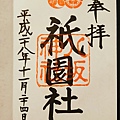 奉拝
祇園社
平成二八年十一月二十四日